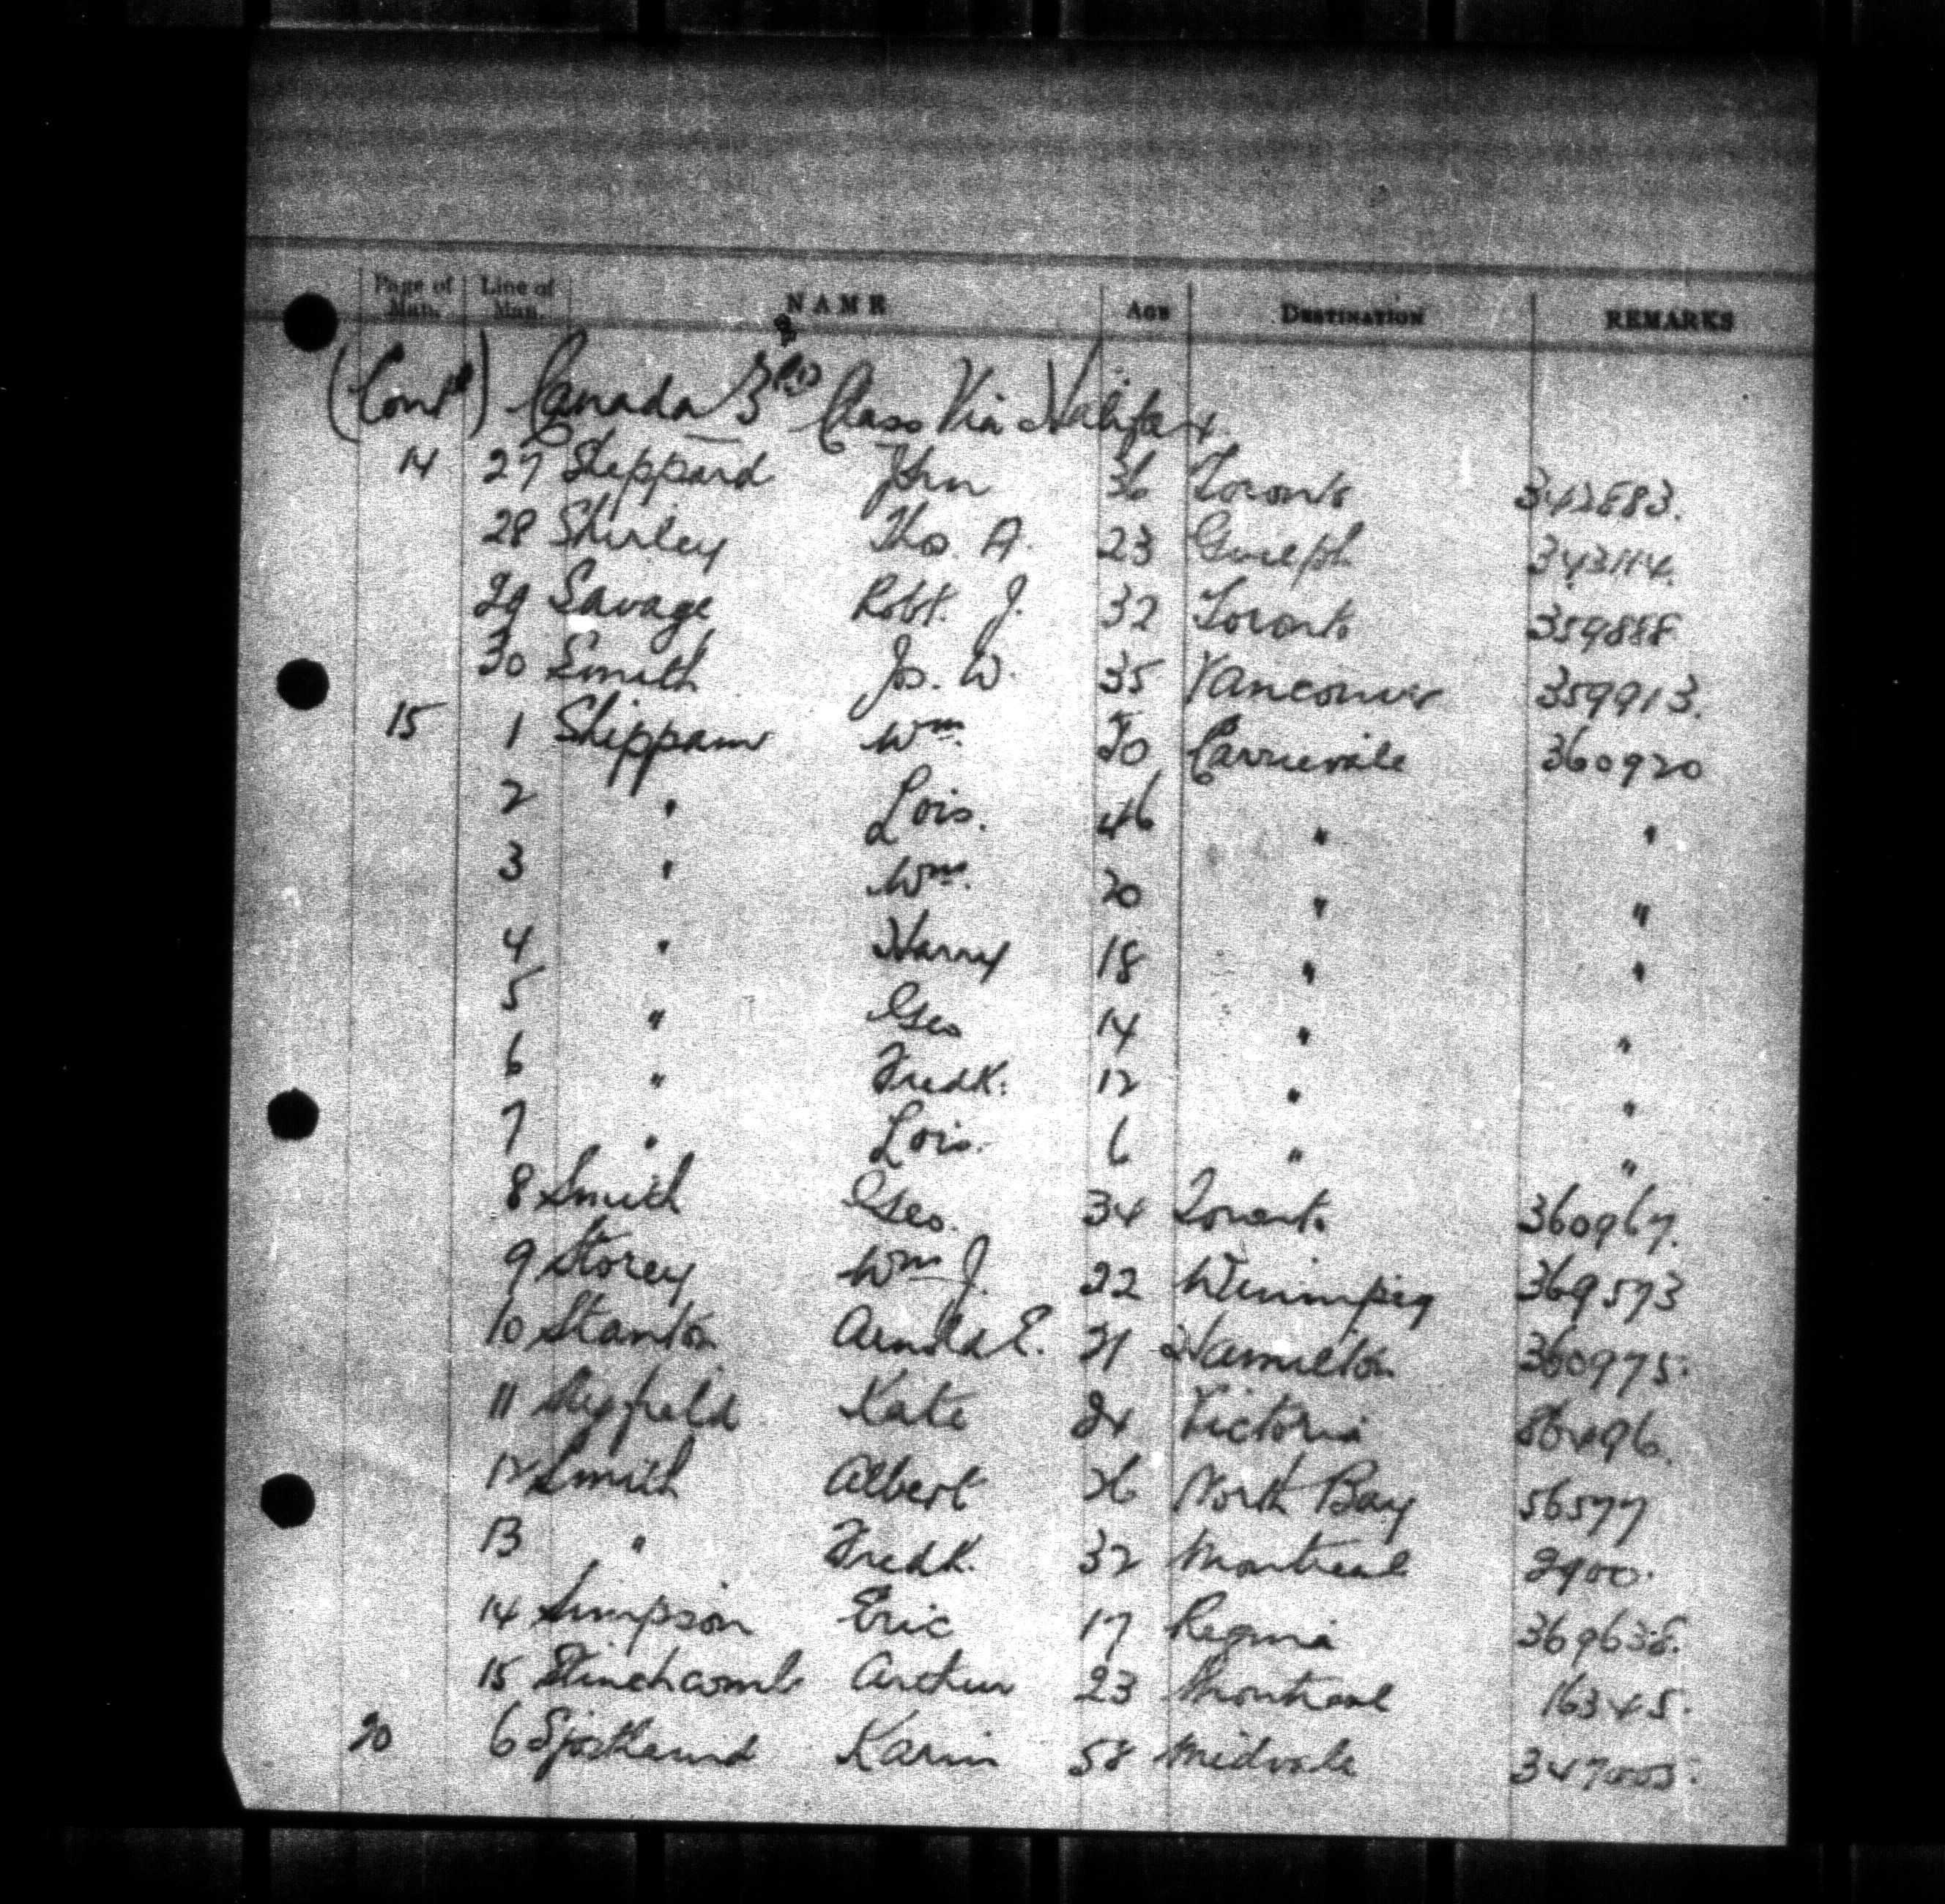 Page of Man. Line of Man. NAME AGE DESTINATION REMARKS
(Cont'd) Canada 3rd Class Via Halifax
14 27 Sheppard John 36 Toronto 342883.
28 Shirley Thos. A. 23 Guelph 343114.
29 Savage Robt. J. 32 Toronto 359888
30 Smith Jos. W. 35 Vancouver 359913.
15 1 Shippam Wm. 50 Carnevale 360920
2 " Lois. 46 " "
3 " Wm. 20 " "
4 " Harry 18 " "
5 " Geo 14 " "
6 " Fredk. 12 " "
7 " Lois. 6 " "
8 Smith Geo. 34 Toronto 360967.
9 Storey Wm J. 22 Winnipeg 369573
10 Stanton Arnold E. 21 Hamilton 360975.
11 Kate 24 Victoria
12 Smith Albert 26 North Bay 56577
13 " Fredk. 32 Montreal 2900.
14 Simpson Eric 17 Regina 369638.
15 Stinchcomb Arthur 23 Montreal 16345.
20 6 Karin 58 Midvale